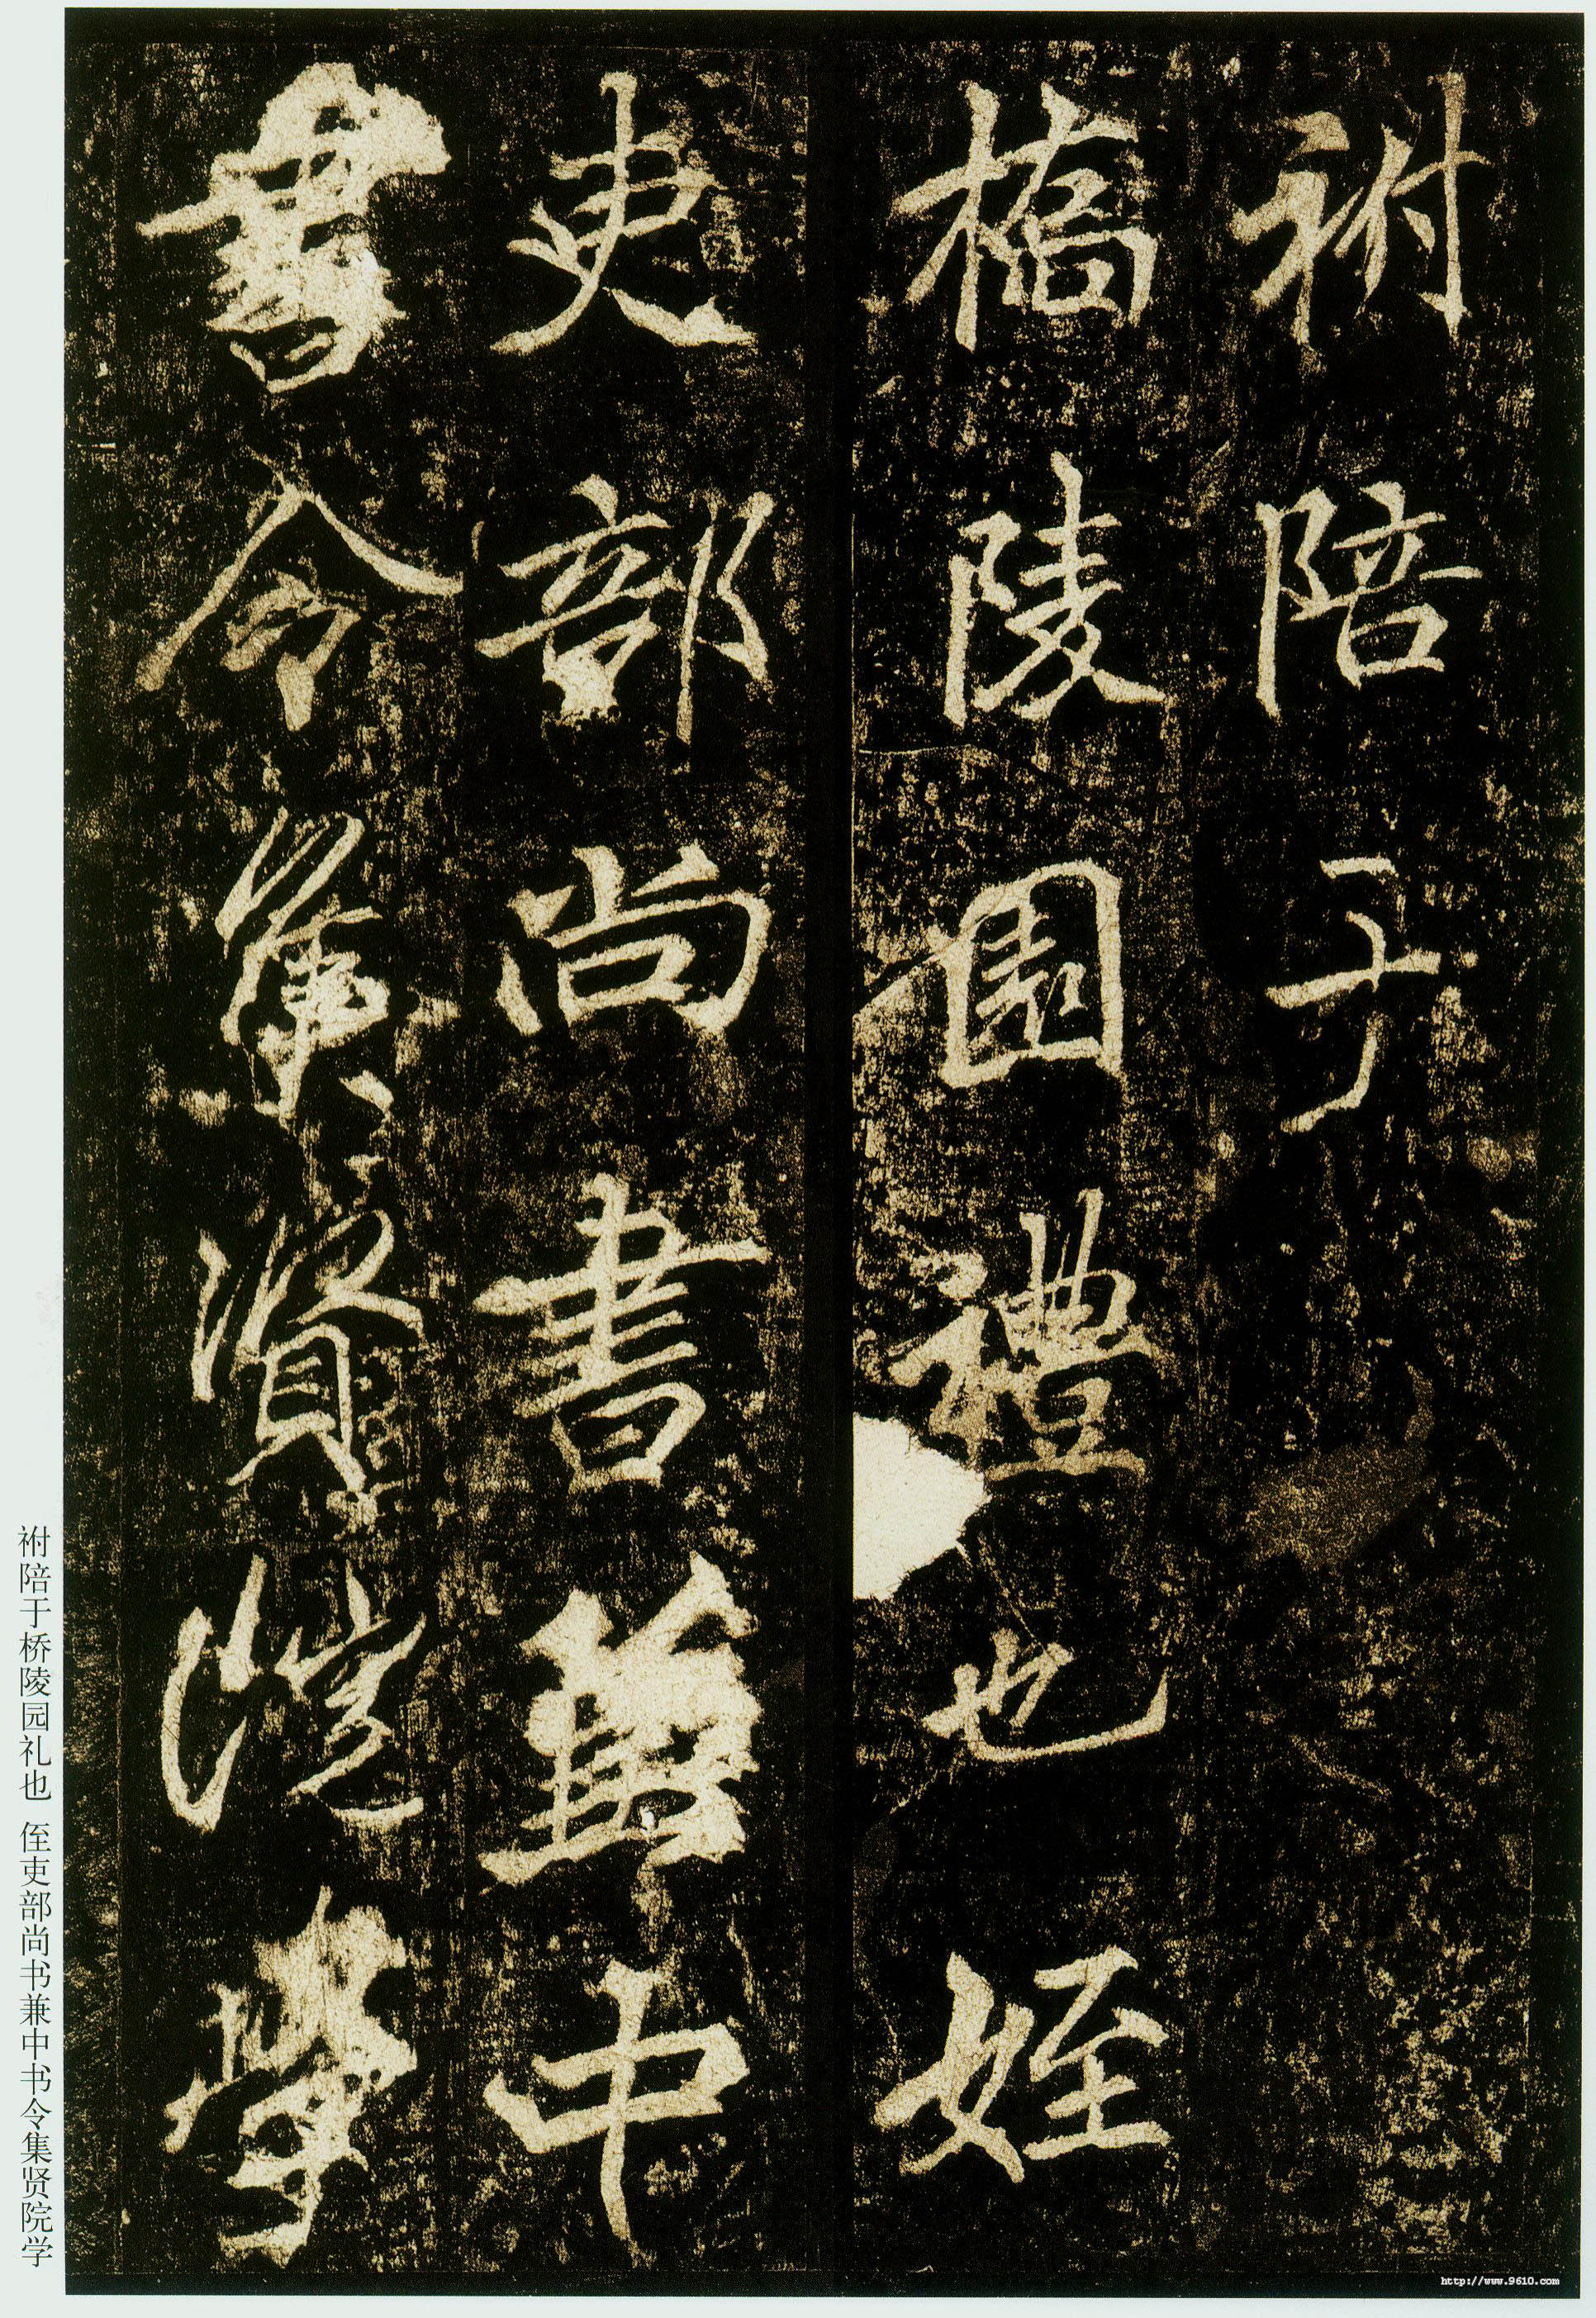 祔陪于
橋陵園禮也姪
吏部尚書兼中
書令集賢院學
祔陪于桥陵园礼也 侄吏部尚书兼中书令集贤院学
http://www.9610.com